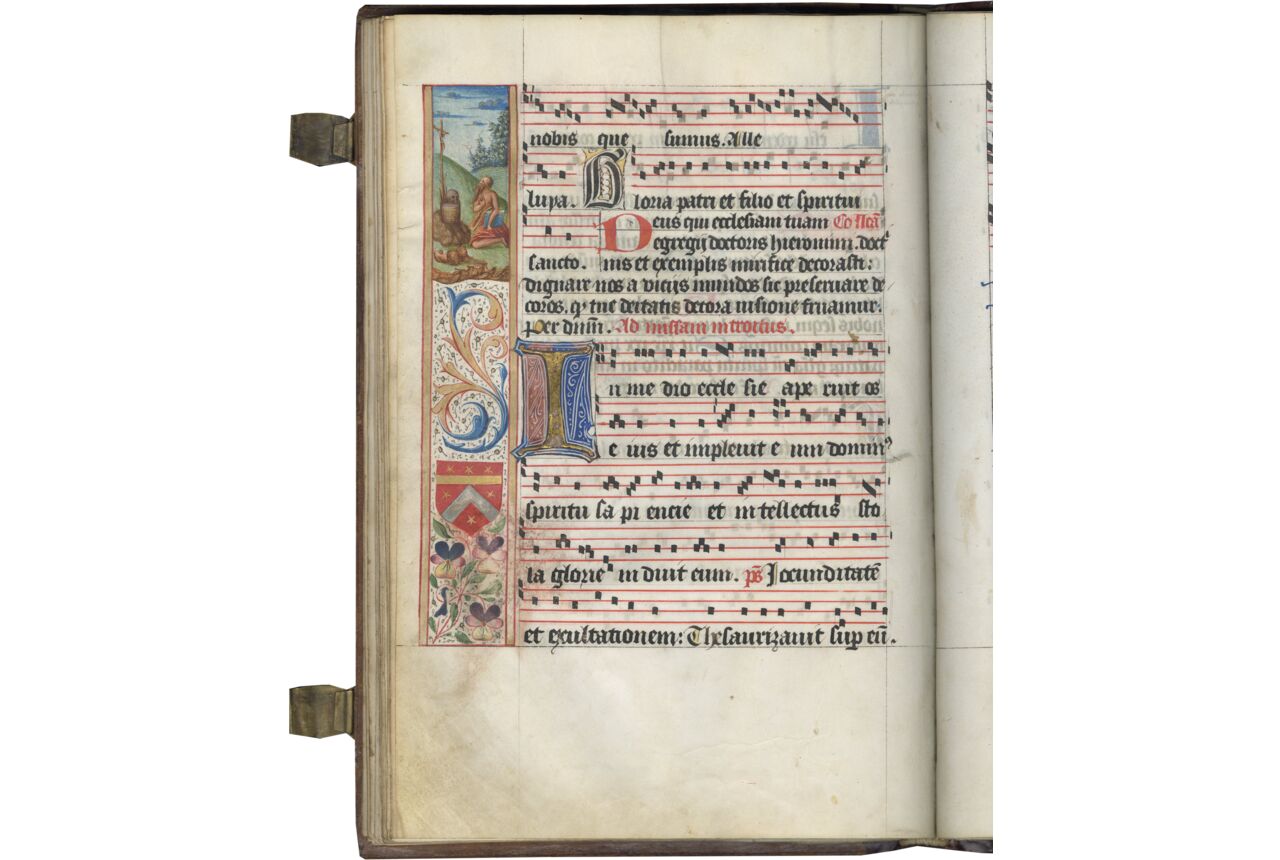 nobis que sumus. Alle
luya. Gloria patri et filio et spiritui
Deus qui ecclesiam tuam Collcã
egregij doctoris hieronimi. doct
sancto. inis et exemplis mirifice decorasti:
dignare nos a vicijs mundos sic preseruare de
coros. qꝫ tue deitatis decora uisione fruamur.
per dñm. Ad missam introitus.
In me dio eccle sie ape ruit os
e ius et impleuit e um domin⁹
spiritu sa pi encie et in tellectus sto
la glorie in duit eum. p̃s Jocunditatẽ
et exultationem: Thesaurizauit sup eũ.